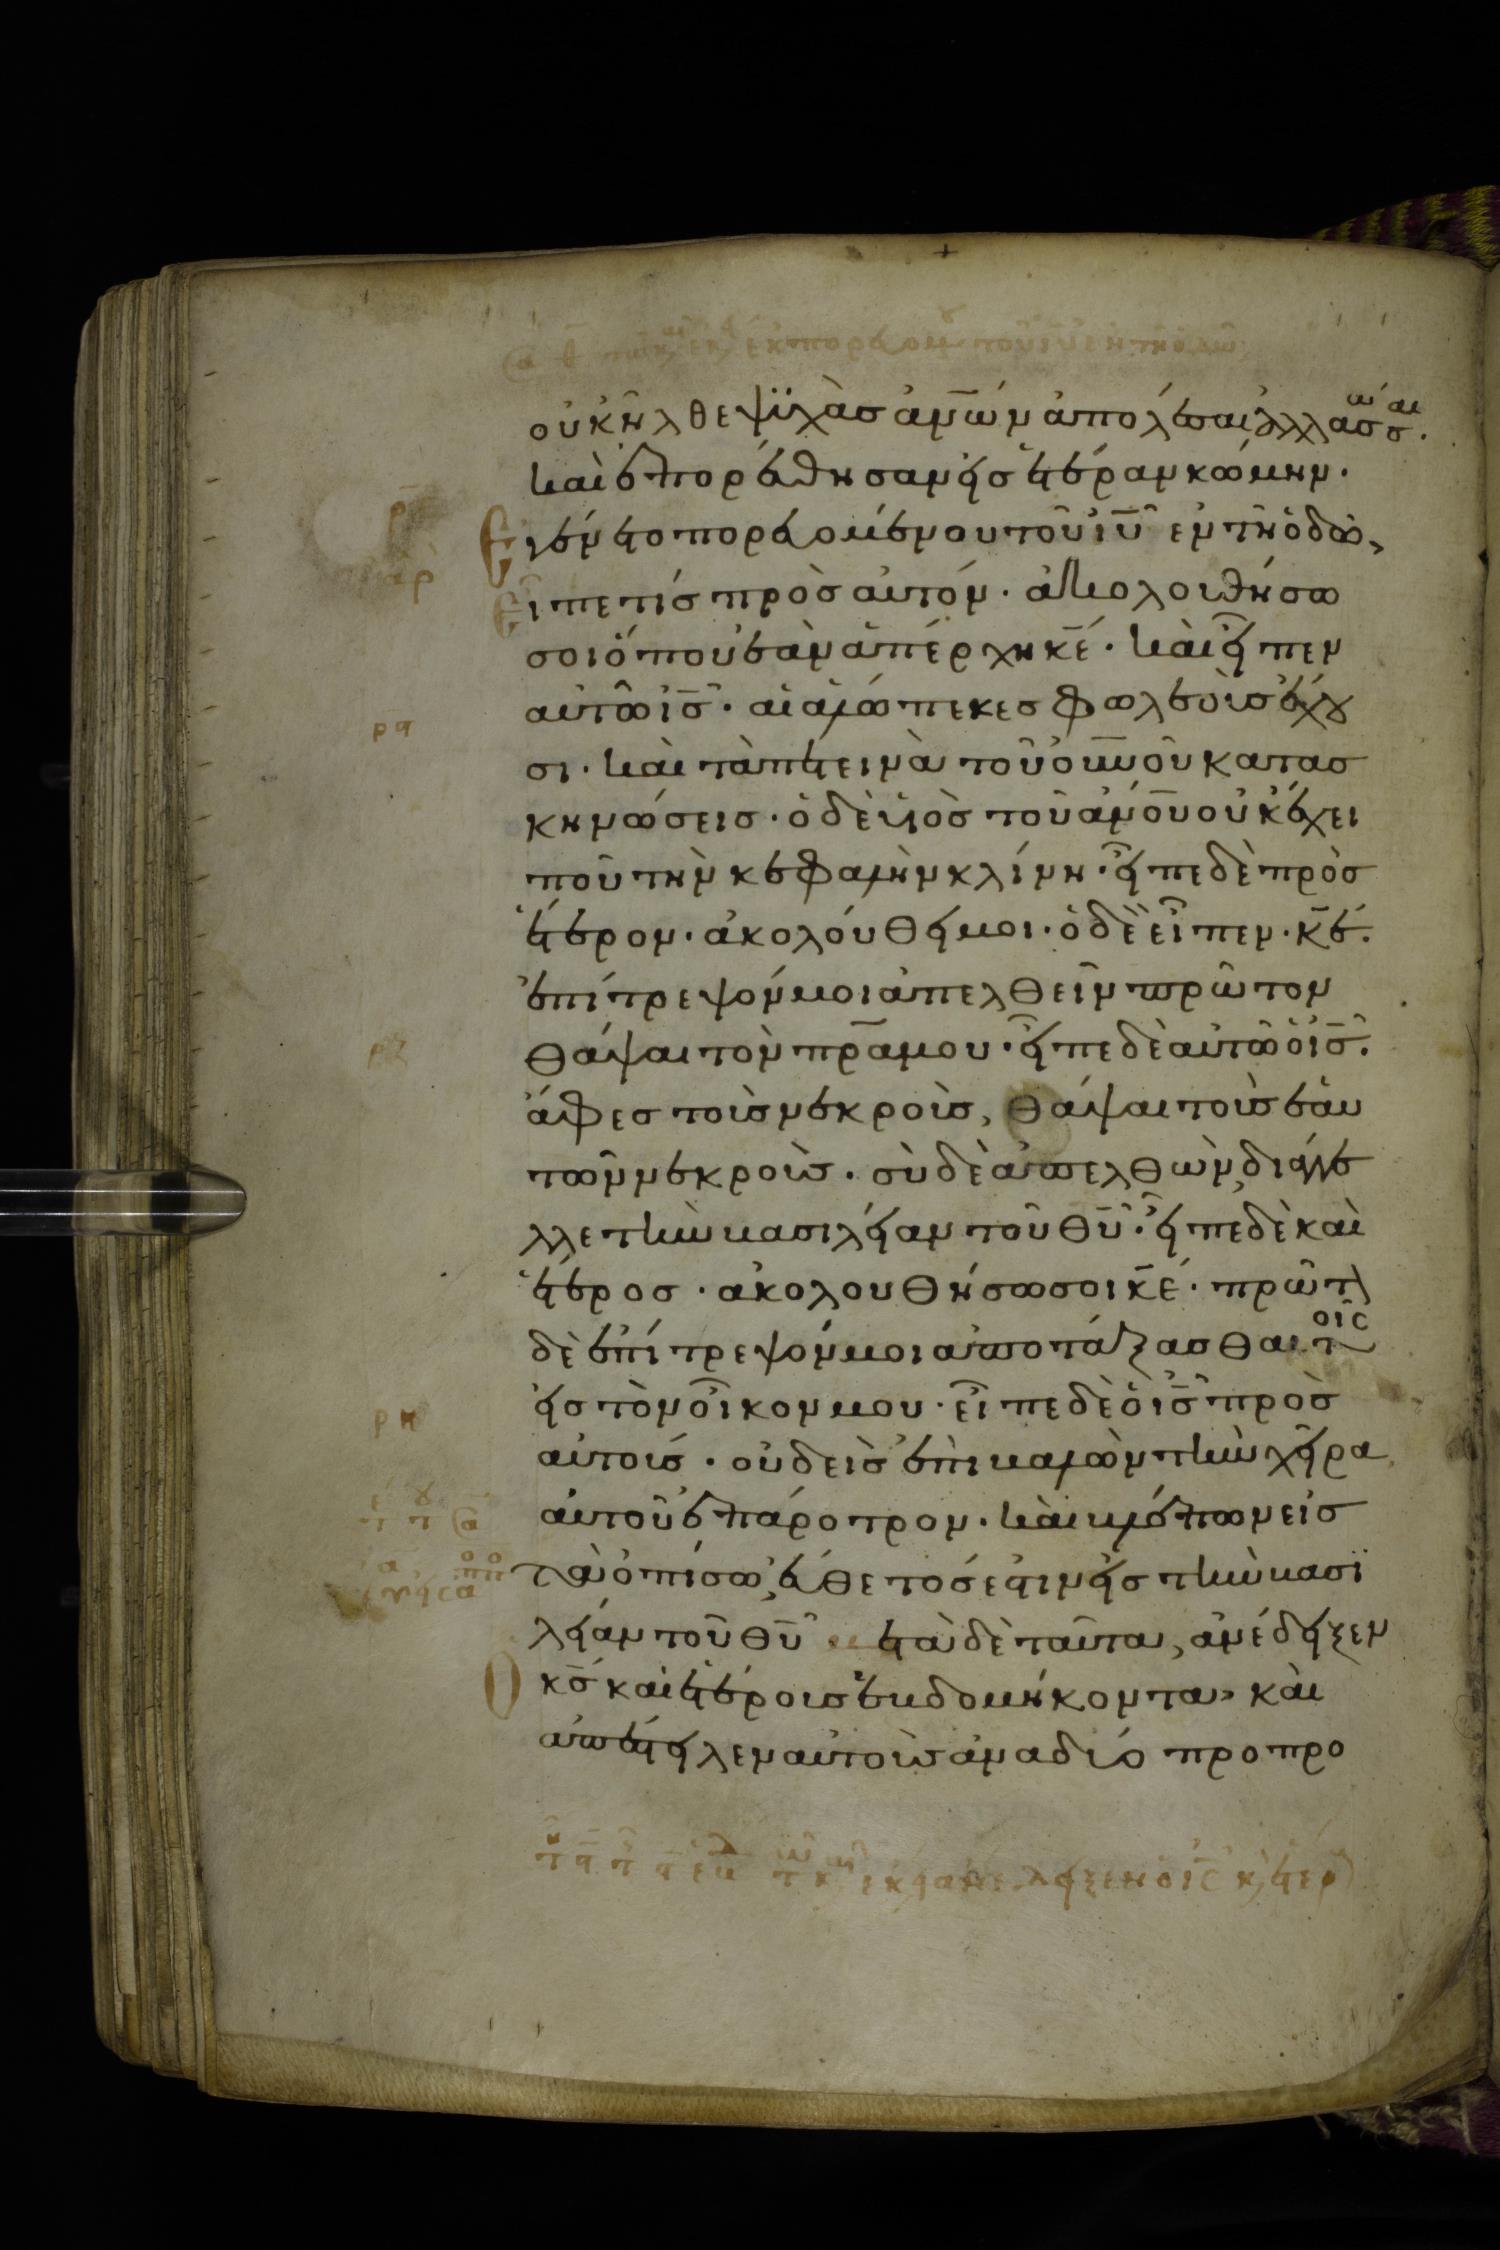 οὐκ ἦλθε ψϋχὰσ ἀν̅ων ἀπολέσαι ἀλλὰ σῶσαι.
καὶ ἐπορεύθησαν εἰσ ἑτέραν κώμην.
Ἐγένετο πορευομένου τοῦ ιυ̅ ἐν τῆ ὁδῶ,
εἶπε τίσ πρὸσ αὐτόν. ἀκολουθήσω
σοι ὅπου ἐὰν ἀπέρχη κε̅. καὶ εἶπεν
αὐτῶ ισ̅. αἱ ἀλώπεκεσ φωλεοὺσ ἔχου
σι. καὶ τὰ πετεινὰ τοῦ οὐνου̅ κατασ
κηνώσεισ. ὁ δὲ υἱὸσ τοῦ ἀνου̅ οὐκ ἔχει
ποῦ τὴν κεφαλὴν κλίνη. εἶπε δὲ πρὸσ
ἕτερον. ἀκολούθει μοι. ὁ δὲ εἶπεν. κε̅.
ἐπίτρεψόν μοι ἀπελθεῖν πρῶτον
θάψαι τὸν πρ̅α μου. εἶπε δὲ αὐτῶ ὁ ισ̅.
ἄφεσ τοὺσ νεκροὺσ, θάψαι τοὺσ ἑαυ
τῶν νεκροὺσ. σὺ δὲ ἀπελθὼν διάγγε
λλε τὴν βασιλείαν τοῦ θυ̅. εἶπε δὲ καὶ
ἕτεροσ. ἀκολουθήσω σοι κε̅. πρῶτον
δὲ ἐπίτρεψόν μοι ἀποτάξασθαι τοῖσ
εἰσ τὸν οἶκον μου. εἶπε δὲ ὁ ισ̅ πρὸσ
αὐτούσ. οὐδεὶσ ἐπιβαλὼν τὴν χεῖρα
αὐτοῦ ἐπ' άροτρον. καὶ βλέπων εἰσ
τὰ ὀπίσω, εὔθετόσ ἐστιν εἰσ τὴν βασϊ
λείαν τοῦ θυ̅ μετὰ δὲ ταῦτα, ἀνέδειξεν
Ὁ κσ̅ καὶ ἑτέρουσ ἑβδομήκοντα, καὶ
ἀπέστειλεν αὐτοὺσ ἀνα δύο προ προ